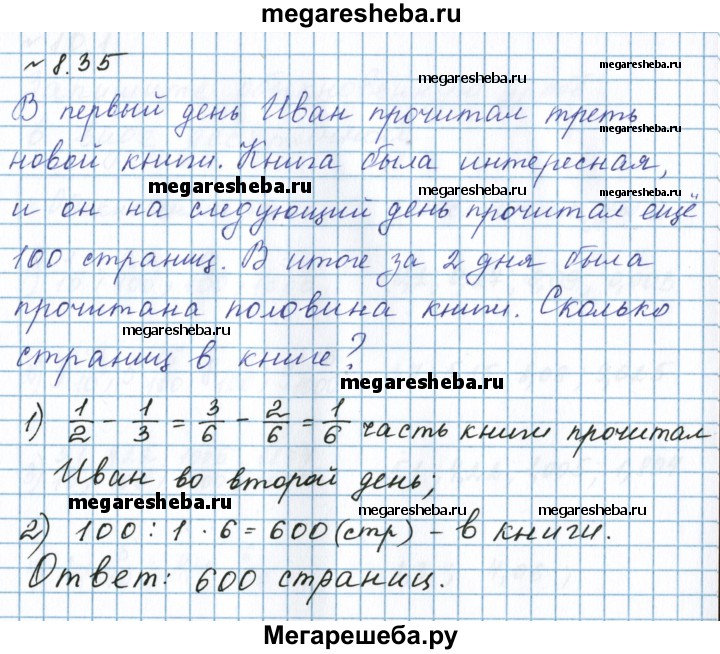 megaresheba.ru
~ 8.35
megaresheba.ru
В первый день Иван прочитал треть
megaresheba.ru
новой книги. Книга была интересная,
megaresheba.ru megaresheba.ru megaresheba.ru
и он на следующий день прочитал ещё
100 страниц. В итоге за 2 дня была
прочитана половина книги. Сколько
megaresheba.ru
страниц в книге?
megaresheba.ru
1) 1/2 - 1/3 = 3/6 - 2/6 = 1/6 часть книги прочитал
Иван во второй день;
megaresheba.ru megaresheba.ru megaresheba.ru
2) 100 : 1 · 6 = 600 (стр) - в книги.
Ответ: 600 страниц.
Мегарешеба.ру